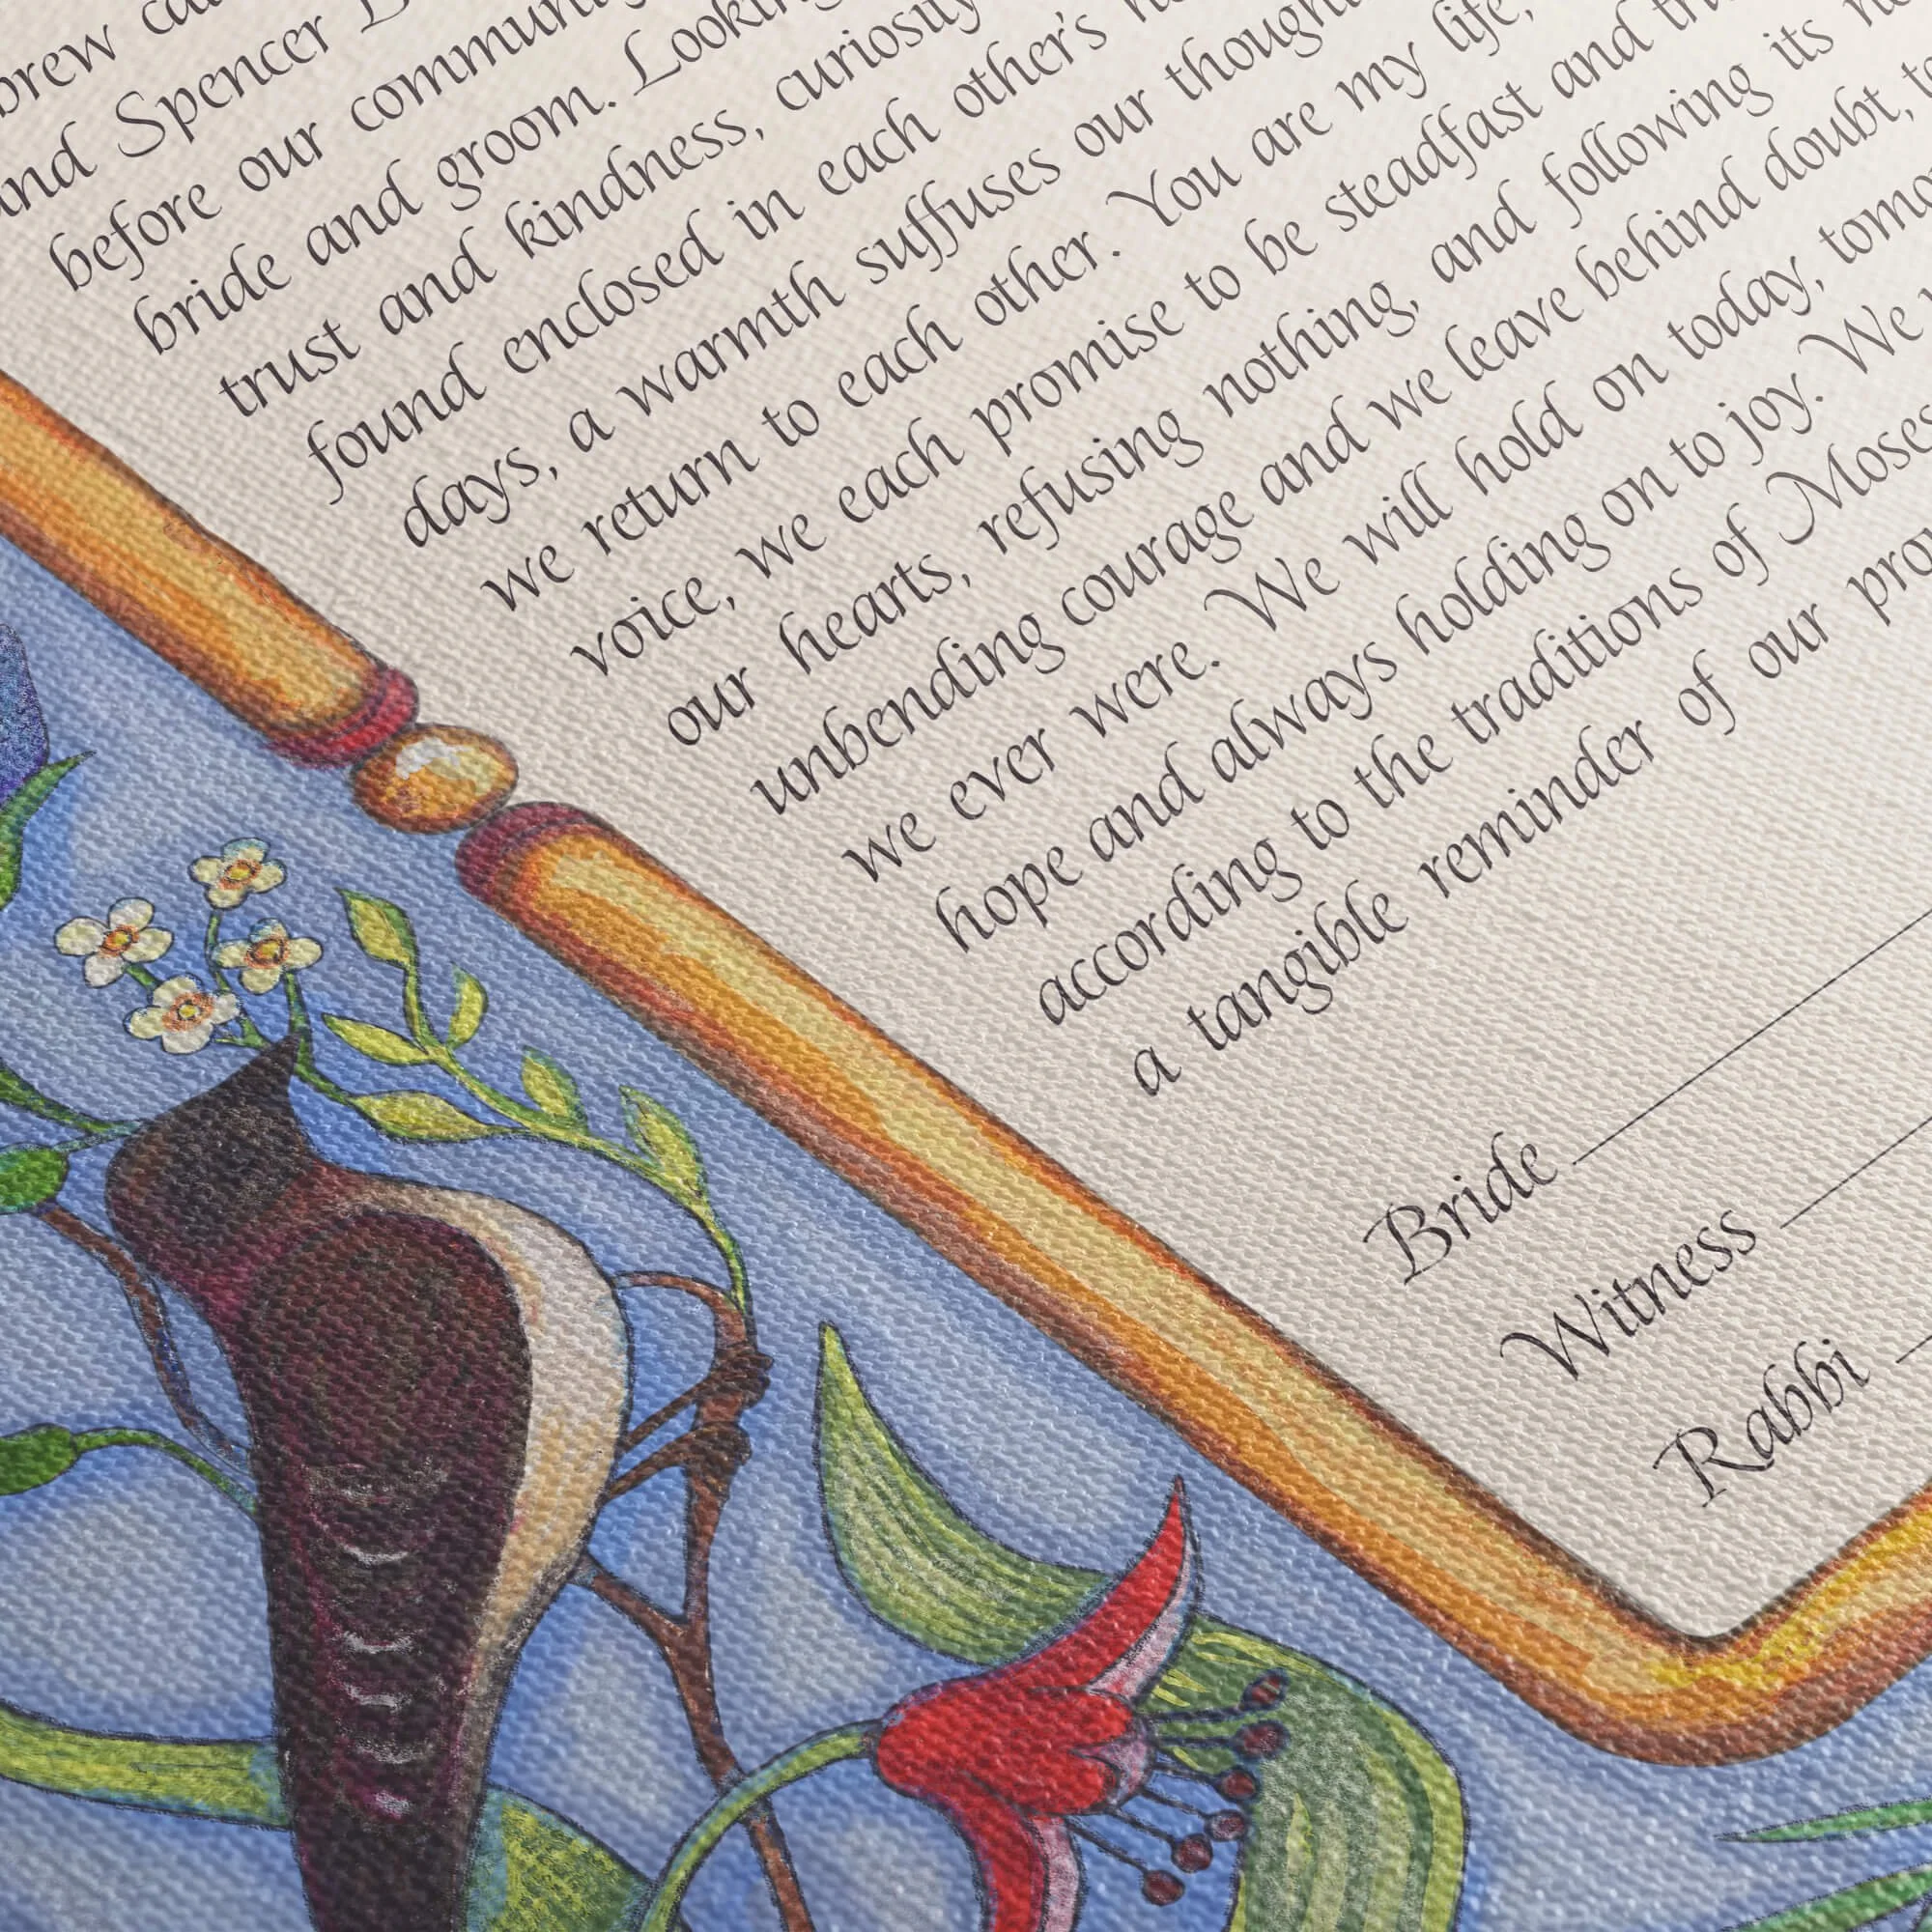 and Spencer
before our
bride and groom.
trust and kindness, curiosity
found enclosed in each other's
days, a warmth suffuses our
we return to each other. You are my life,
voice, we each promise to be steadfast and
our hearts, refusing nothing, and following its
unbending courage and we leave behind doubt,
we ever were. We will hold on today,
hope and always holding on to joy. We
according to the traditions of
a tangible reminder of our
Bride
Witness
Rabbi